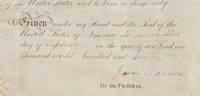 of the United States and to
Given under my Hand and the Seal of the
United States of America the
day of September in the year of our Lord one
thousand eight hundred and
By the President.